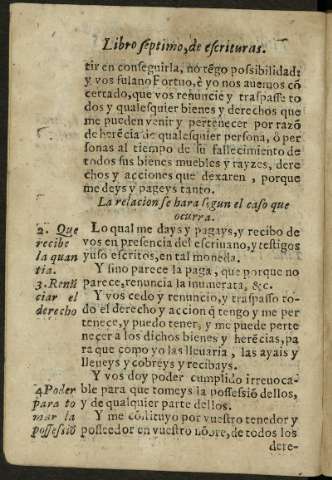 Libro septimo, de escrituras.
tir en conseguirla, no tẽgo possibilidad:
y vos fulano Fortuo, è yo nos auemos cõ
certado, que vos renuncie y traspasse to
dos y qualesquier bienes y derechos que
me pueden venir y pertenecer por razõ
de herẽcia de qualesquier persona, ò per
sonas al tiempo de su fallecimiento de
todos sus bienes muebles y rayzes, dere
chos y acciones que dexaren, porque
me deys y pageys tanto.
La relacion se hara segun el caso que
ocurra.
2. Que
recibe
la quan
tia.
Lo qual me days y pagays, y recibo de
vos en presencia del escriuano, y testigos
yuso escritos, en tal moneda.
Y sino parece la paga, que porque no
parece, renuncia la inumerata, &c.
3. Renũ
ciar el
derecho
Y vos cedo y renuncio, y traspasso to-
do el derecho y accion q̃ tengo y me per
tenece, y puedo tener, y me puede perte
necer a los dichos bienes y herẽcias, pa
ra que como yo las lleuaria, las ayais y
lleueys y cobreys y recibays.
4. Poder
para to
mar la
possessiõ
Y vos doy poder cumplido irreuoca-
ble para que tomeys la possessiõ dellos,
y de qualquier parte dellos.
Y me cõstituyo por vuestro tenedor y
posseedor en vuestro nõbre, de todos los
dere-